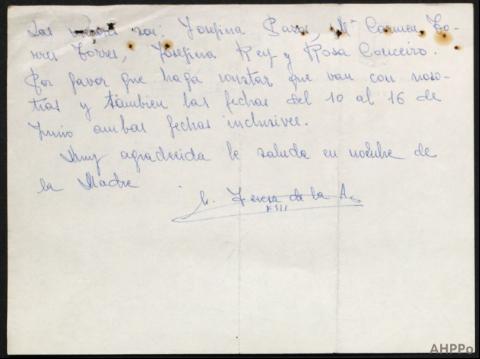 Las son: Josefina Pazos, Mª Carmen To-
rres Torres, Josefina Rey y Rosa Couceiro.
Por favor que haga constar que van con noso-
tras y tambien las fechas del 10 al 16 de
Junio ambas fechas inclusives.
Muy agradecida le saluda en nombre de
la Madre
Teresa de la A.
AHPPo